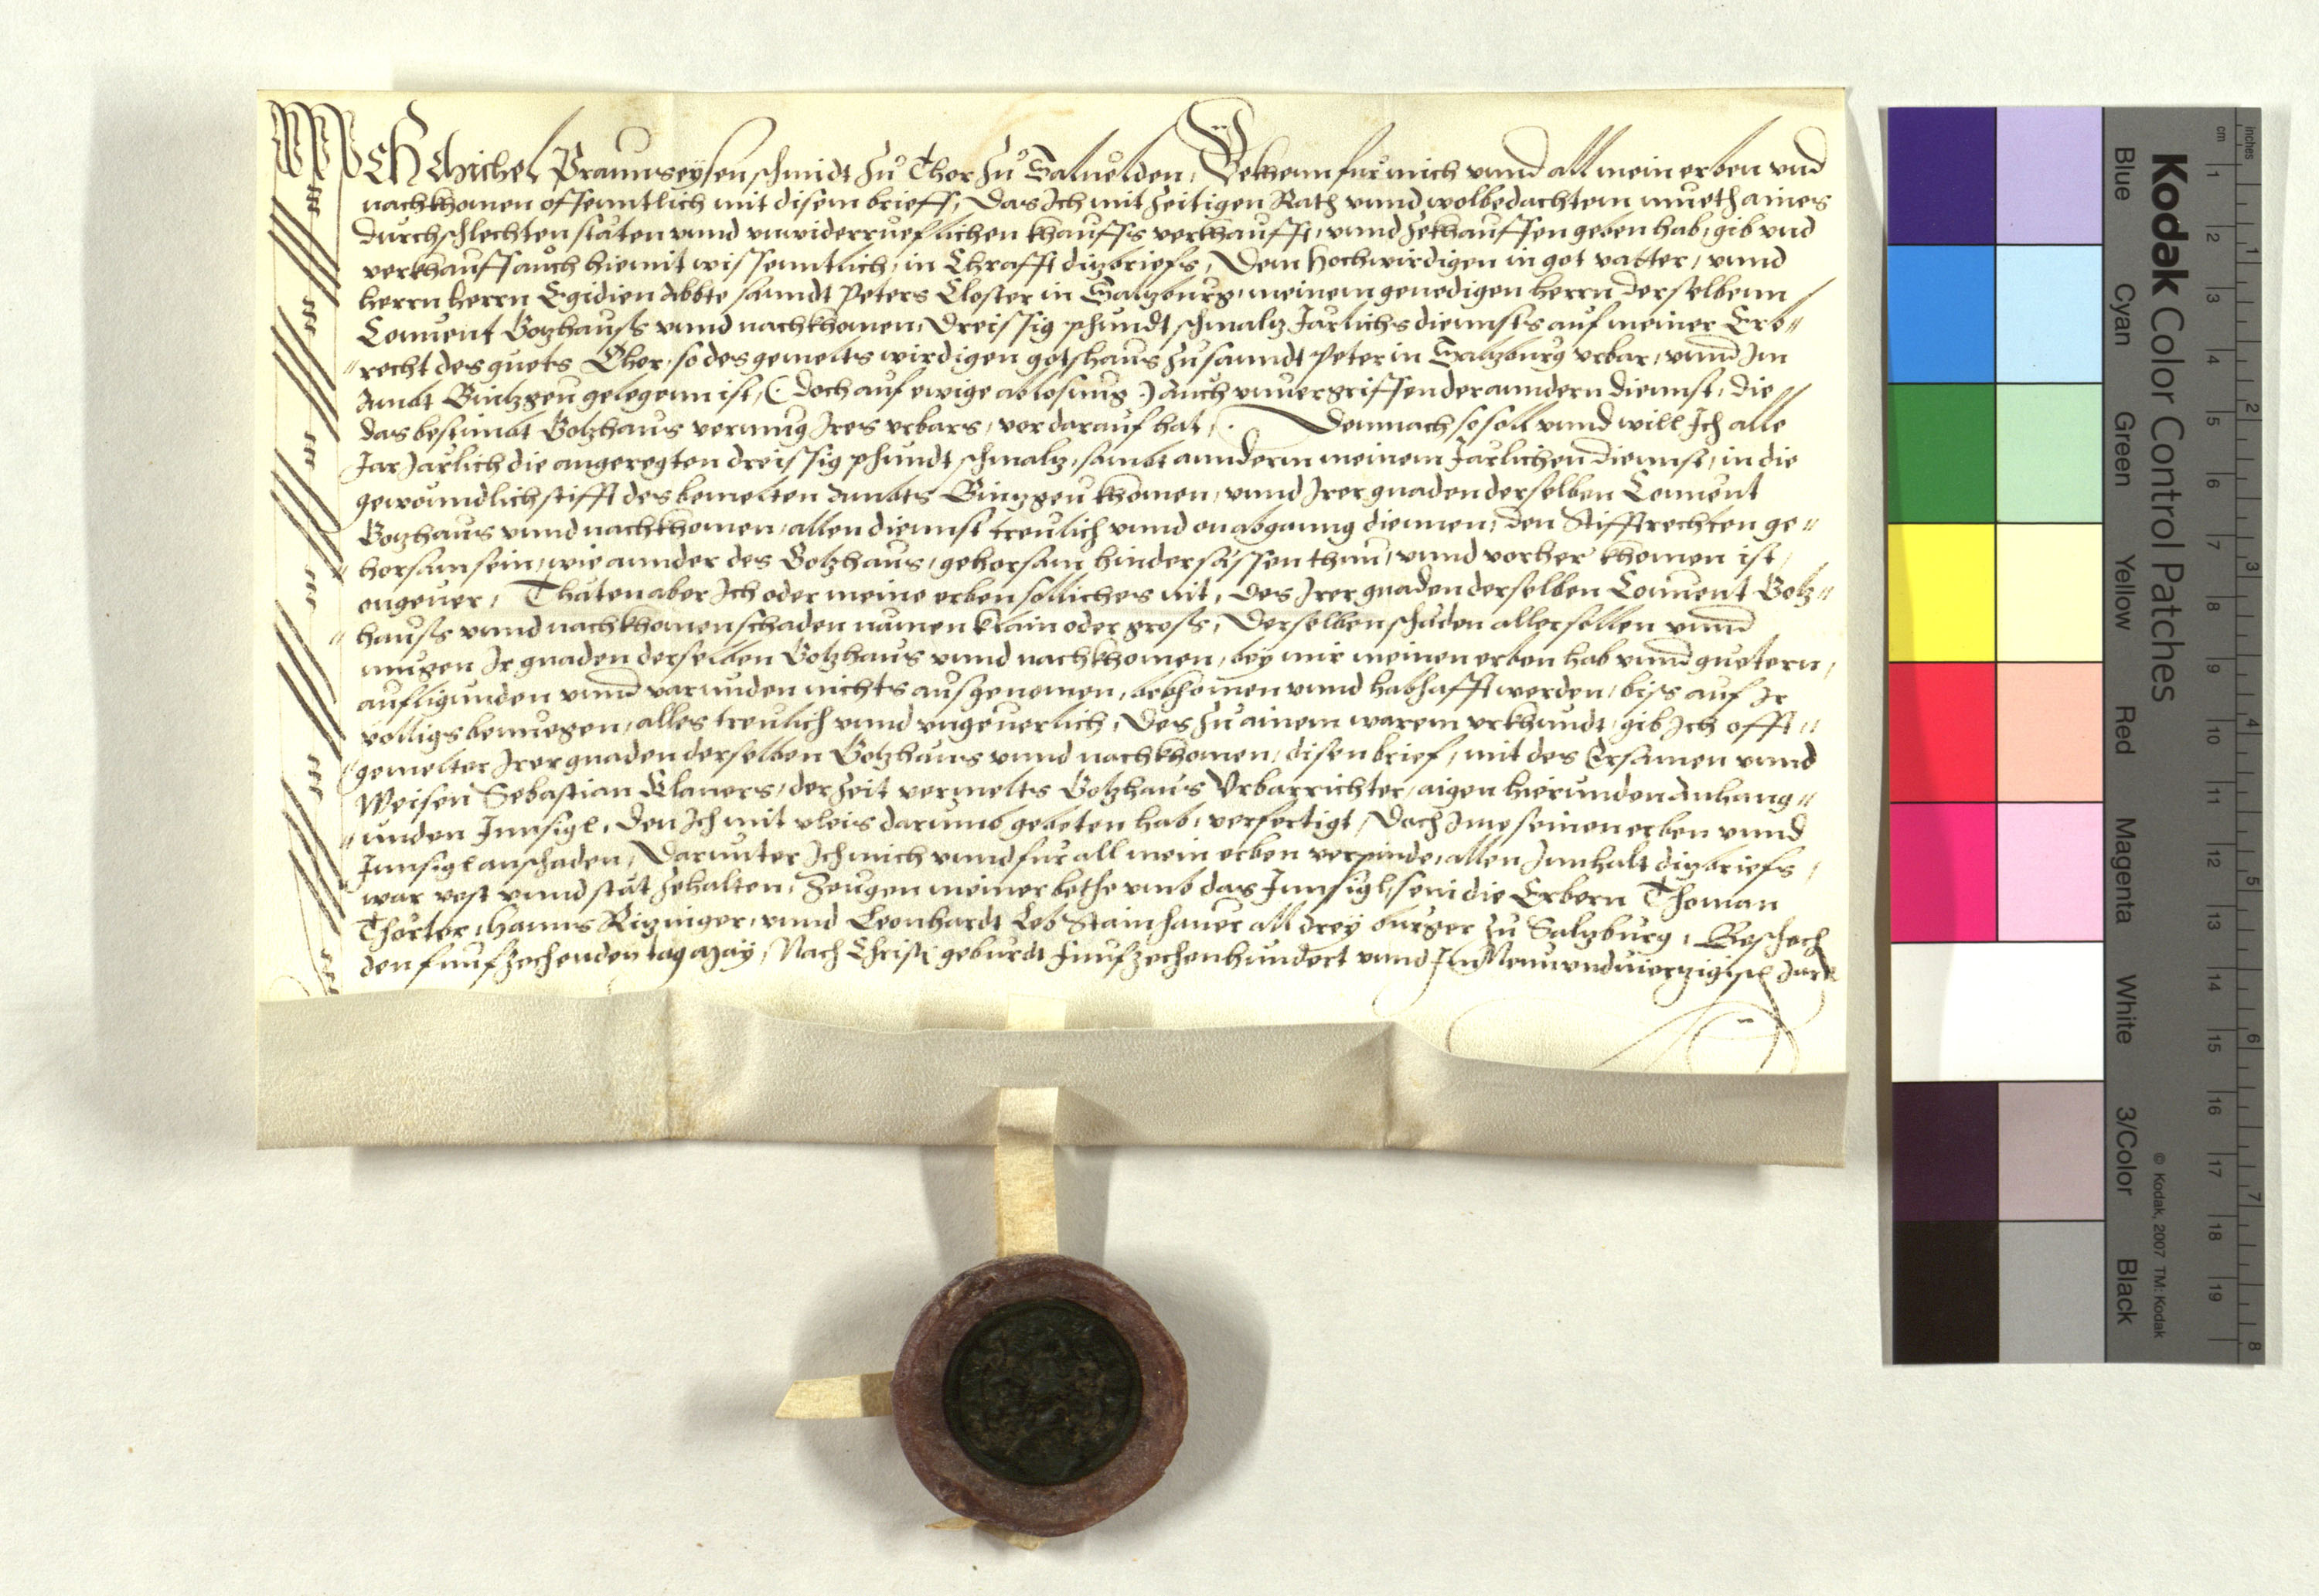 Ich Michel Praun segensschmidt zů Thor zů Saluelden, Bekhenn für mich vnnd all mein erben vnd
nachkhomen offenntlich mit disem brieff, Das Ich mit zeitigen Rath vnnd wolbedachtem mueth aines
durchschlechten stäten vnnd vnwiderrueflichen khauffs verkhaufft, vnnd zekhauffen geben hab, gib vnd
verkhauff auch hiemit wissenntlich, in Chrafft ditzbriefs, Dem Hochwirdigen in got vatter, vnnd
herrn herrn Egidien Abbte sanndt Peters Closter in Saltzburg, meinem genedigen herrn derselbenn
Conuent Gotzhauß vnnd nachkhomen, Dreissig phundt schmaltz Järlichs diennsts auf meiner Erb〃
〃recht des guets Thor, so des gemelts wirdigen gotshaus zu sanndt Peter in Saltzburg vrbar, vnnd Im
Ambt Bintzgeu gelegenn ist, (: doch auf ewige ablosung :) Auch vnuergriffen der anndern diennst, die
das bestimbt Gotzhaus vermug Ires vrbars, vor darauf hat, . Demnach so soll vnnd will Ich alle
Jar Järlich die angeregten dreissig phundt schmaltz, sambt annderm meinem Järlichen diennst, in die
gewöndlich stifft des bemelten Ambts Bintzgeu khomen, vnnd Irer gnaden derselben Conuent
Gotzhaus vnnd nachkhomen, allen diennst treulich vnnd on abganng diennen, den Stifftrechten ge〃
〃horsam sein, wie annder des Gotzhaus, gehorsam hindersässen thun, vnnd vorher khomen ist,
ongeuer, Thäten aber Ich oder meine erben solliches nit, des Irer gnaden derselben Conuent Gotz〃
〃hauß vnnd nachkhomen schaden namen klain oder groß, Derselben schäden aller sollen vnnd
mugen Ir gnaden derselben Gotzhaus vnnd nachkhomen, bey mir meinen erben hab vnnd guetern,
aufligunden vnnd varunden nichts außgenomen, bekhomen vnnd habhafft werden, biß auf Ir
völligs benuegen, alles treulich vnnd vngeuerlich, Des zu ainem warem vrkhundt, gib Ich offt〃
〃gemelter Irer gnaden derselben Gotzhaus vnnd nachkhomen, disen brief, mit des Ersamen vnnd
Weisen Sebastian Klaners, der zeit vermelts Gotzhaus Vrbarrichter, aigen hierunden Anhang〃
〃unden Innsigl, den Ich mit vleis darumb gebeten hab, verfertigt, Doch Ime seinen erben vnnd
Innsigl anschaden, Darunter Ich mich vnnd für all mein erben verpinde, allen Innhalt ditzbriefs,
war vest vnnd stät zehalten, Zeugen meiner bethe vmb das Innsigl, sein die Erbern Thoman
Thorter, Hanns Ritzinger, vnnd Leonhardt Leb Stainhauer all drey burger zu Saltzburg, Beschech
den funfzechenden tag May, Nach Christi geburdt Funfzechenhundert vnnd Im Neunundvierzigisten Jare
Kodak Color Control Patches
Blue Cyan Green Yellow Red Magenta White 3/Color Black
© Kodak, 2007 TM: Kodak
cm 1 2 3 4 5 6 7 8 9 10 11 12 13 14 15 16 17 18 19
inches 1 2 3 4 5 6 7 8